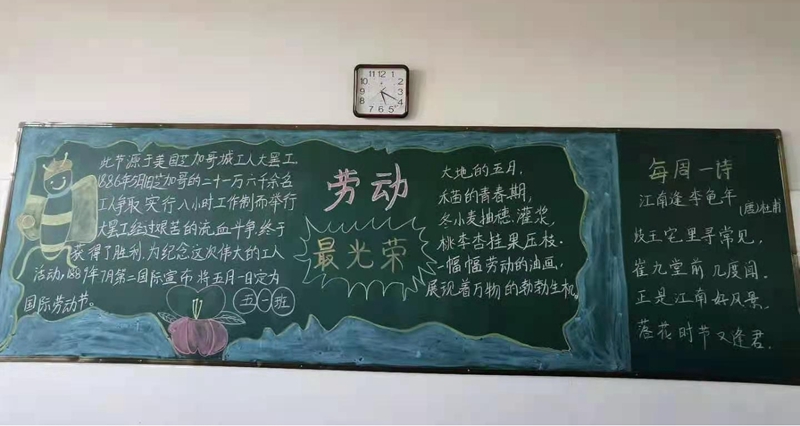 此节源于美国芝加哥城工人大罢工.
1886年5月1日芝加哥的二十一万六千余名
工人争取实行八小时工作制而举行
大罢工经过艰苦的流血斗争,终于
获得了胜利,为纪念这次伟大的工人
活动,1889年7月第二国际宣布将五月一日定为
国际劳动节。
五一班
劳动
最光荣
大地的五月,
禾苗的青春期,
冬小麦抽穗.灌浆,
桃李杏挂果压枝.
一幅幅劳动的油画,
展现着万物的勃勃生机.
每周一诗
江南逢李龟年
(唐)杜甫
岐王宅里寻常见,
崔九堂前几度闻.
正是江南好风景,
落花时节又逢君.
12
1
2
3
4
5
6
7
8
9
10
11